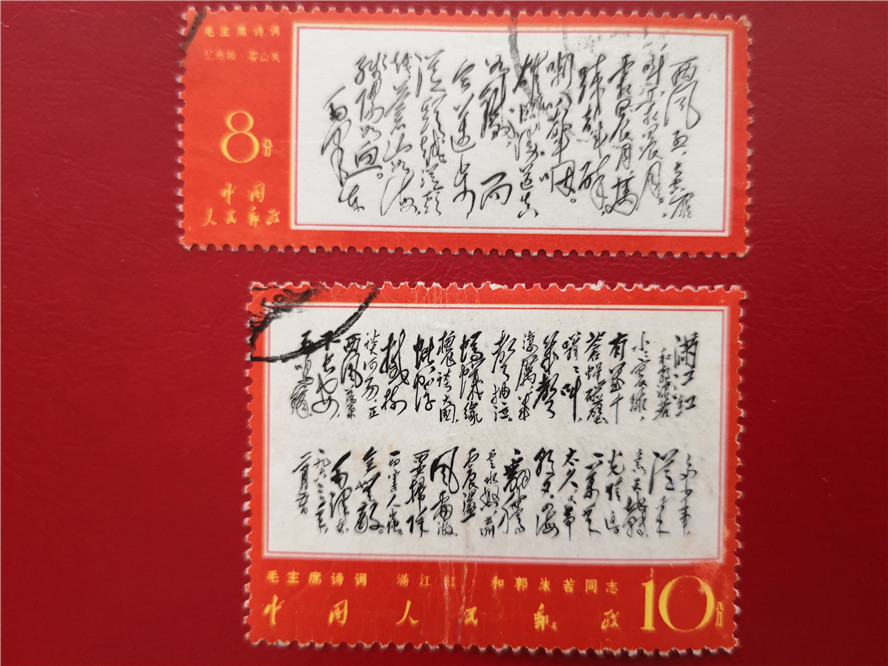 毛主席诗词
忆秦娥 娄山关
8分
中国
人民邮政
西风烈,长空雁
叫霜晨月。
霜晨月,马
蹄声碎,
喇叭声咽。
雄关漫道真
如铁,而
今迈步
从头越。从头
越,苍山如海,
残阳如血。
毛泽东
满江红
和郭沫若
小小寰球,
有几个
苍蝇碰壁
嗡嗡叫,
几声
凄厉,几
声抽泣。
蚂蚁缘
槐夸大国,
蚍蜉
撼树
谈何易。正
西风落叶
下长安,
飞鸣镝。
多少事,
从来
急。天地转,
光阴迫。
一万年
太久,只争
朝夕。四海
翻腾
云水怒,五洲
震荡
风雷激。
要扫除
一切害人虫,
全无敌。
毛泽东
一九六三年
二月五日
毛主席诗词 满江红 和郭沫若同志
中国人民邮政 10分